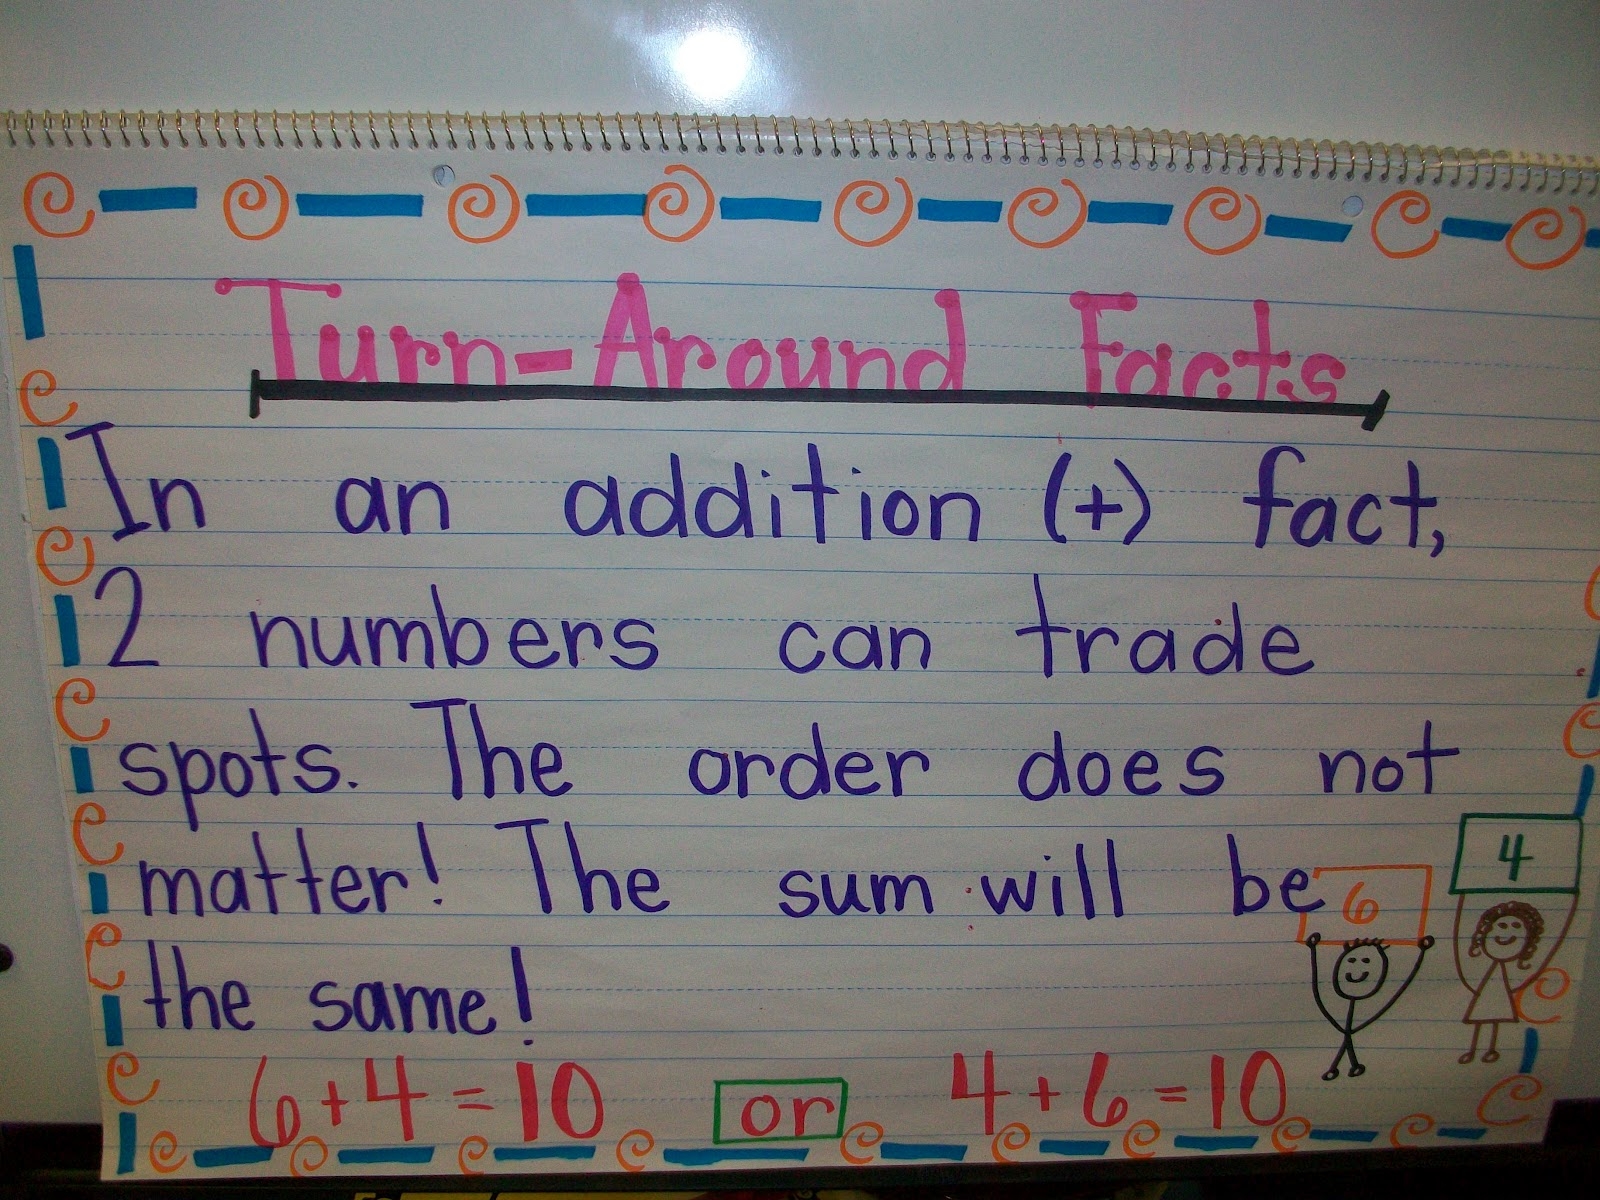 Turn-Around Facts
In an addition (+) fact,
2 numbers can trade
spots. The order does not
matter! The sum will be
the same!
6 4
6+4=10 or 4+6=10